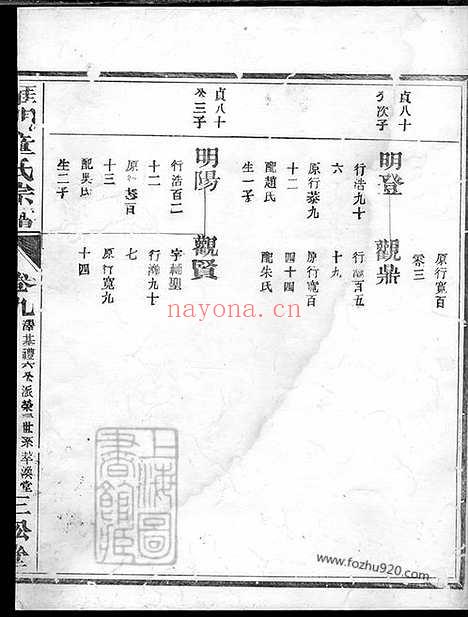 原行寬百
零三
貞八十
次子
明登
行浩九十
六
原行恭九
十二
配趙氏
生一子
觀鼎
行瀚百五
十九
原行寬百
四十四
配朱氏
貞八十
公三子
明陽
行浩百二
十二
原行恭百
十三
配吳氏
生二子
觀賢
字輔聖
行瀚九十
七
原行寬九
十四
童氏宗譜
卷九
澤基禮六公派榮一世系
萃渙堂
三松堂
上海圖書館藏
nayona.cn
www.fozhu920.com